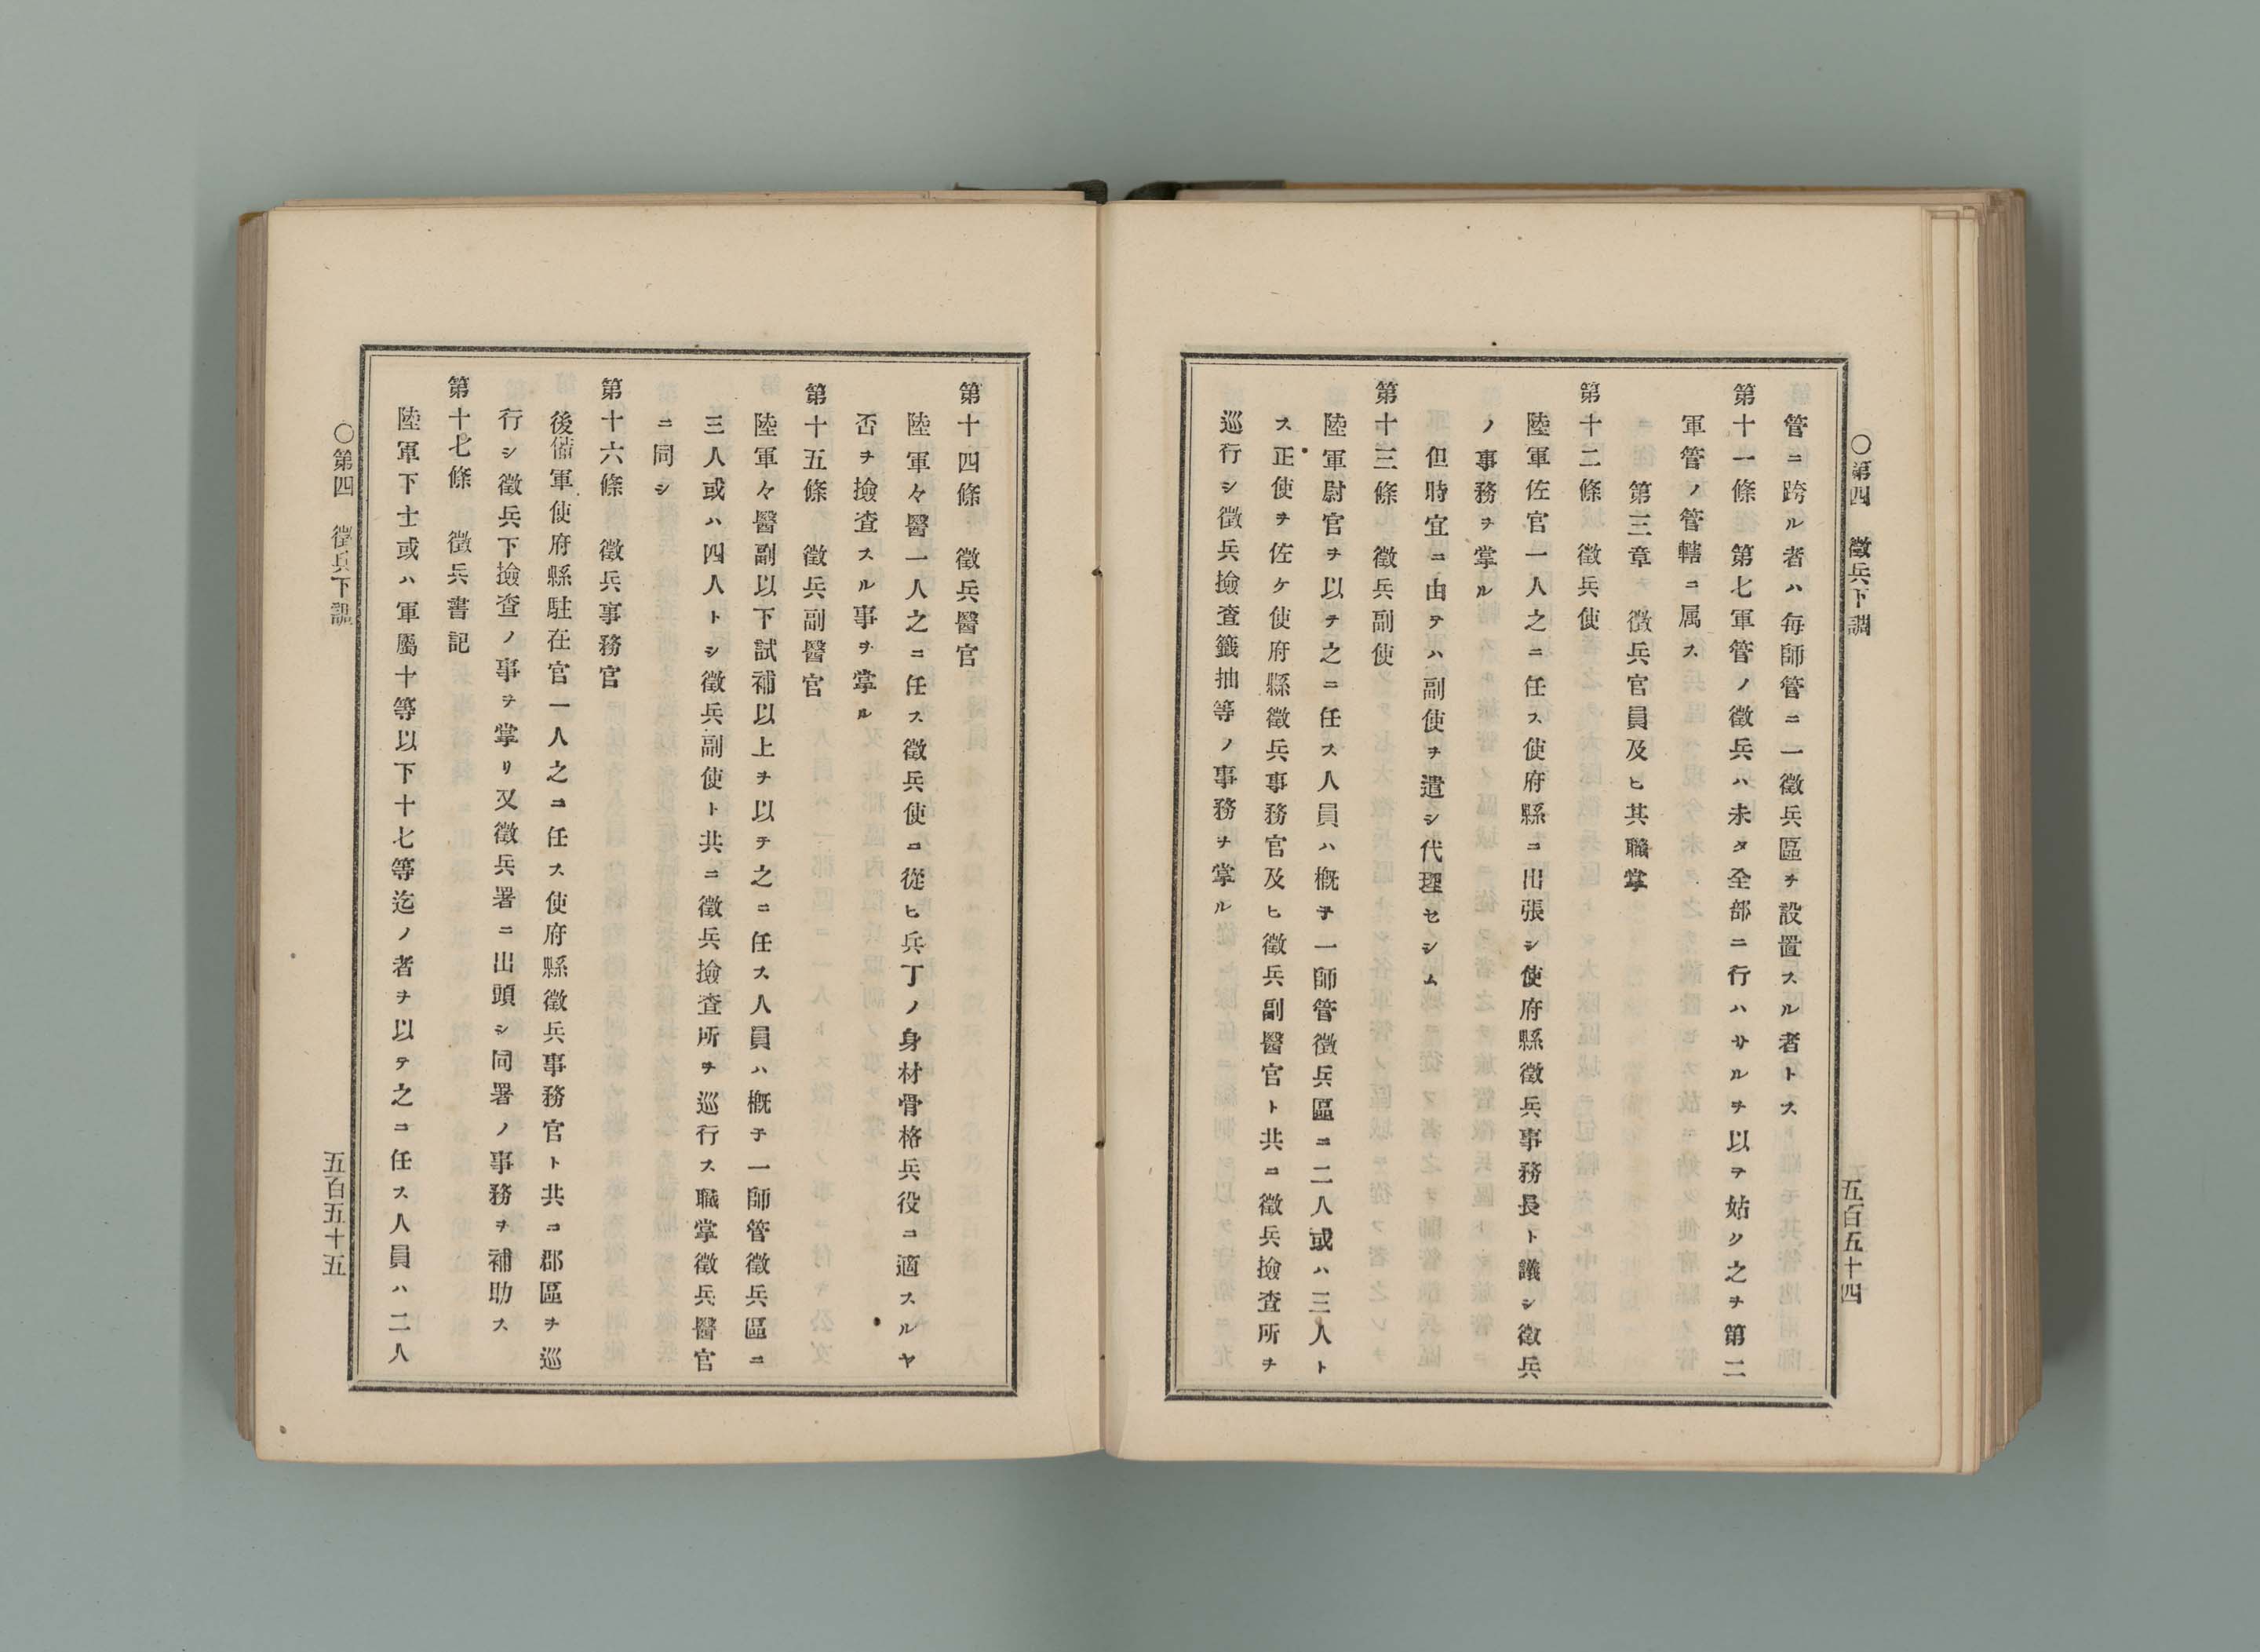 ○第四 徵兵下調 五百五十四
管ニ跨ル者ハ每師管ニ一徵兵區ヲ設置スル者トス
第十一條 第七軍管ノ徵兵ハ未タ全部ニ行ハサルヲ以テ姑ク之ヲ第二
軍管ノ管轄ニ属ス
第三章 徵兵官員及ヒ其職掌
第十二條 徵兵使
陸軍佐官一人之ニ任ス使府縣ニ出張シ使府縣徵兵事務長ト議シ徵兵
ノ事務ヲ掌ル
但時宜ニ由テハ副使ヲ遣シ代理セシム
第十三條 徵兵副使
陸軍尉官ヲ以テ之ニ任ス人員ハ槪子一師管徵兵區ニ二人或ハ三人ト
ス正使ヲ佐ケ使府縣徵兵事務官及ヒ徵兵副醫官ト共ニ徵兵撿査所ヲ
巡行シ徵兵撿査籤抽等ノ事務ヲ掌ル
第十四條 徵兵醫官
陸軍々醫一人之ニ任ス徵兵使ニ從ヒ兵丁ノ身材骨格兵役ニ適スルヤ
否ヲ撿査スル事ヲ掌ル
第十五條 徵兵副醫官
陸軍々醫副以下試補以上ヲ以テ之ニ任ス人員ハ槪子一師管徵兵區ニ
三人或ハ四人トシ徵兵副使ト共ニ徵兵撿査所ヲ巡行ス職掌徵兵醫官
ニ同シ
第十六條 徵兵事務官
後備軍使府縣駐在官一人之ニ任ス使府縣徵兵事務官ト共ニ郡區ヲ巡
行シ徵兵下撿査ノ事ヲ掌リ又徵兵署ニ出頭シ同署ノ事務ヲ補助ス
第十七條 徵兵書記
陸軍下士或ハ軍屬十等以下十七等迄ノ者ヲ以テ之ニ任ス人員ハ二人
○第四 徵兵下調 五百五十五